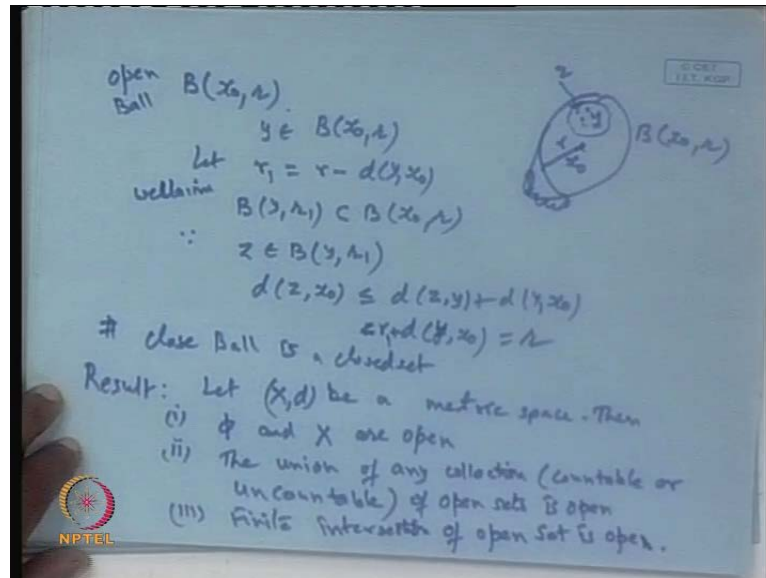 open B(x₀, r).
Ball
y ∈ B(x₀, r)
Let r₁ = r - d(y, x₀)
we claim
B(y, r₁) ⊂ B(x₀, r)
∵ z ∈ B(y, r₁)
d(z, x₀) ≤ d(z, y) + d(y, x₀)
< r₁ + d(y, x₀) = r
# Close Ball is a closed set
Result: Let (X, d) be a metric space. Then
(i) ϕ and X are open
(ii) The union of any collection (countable or
uncountable) of open sets is open
(iii) Finite intersection of open set is open.
z
y
r
x₀
B(x₀, r)
I.I.T. KGP
NPTEL